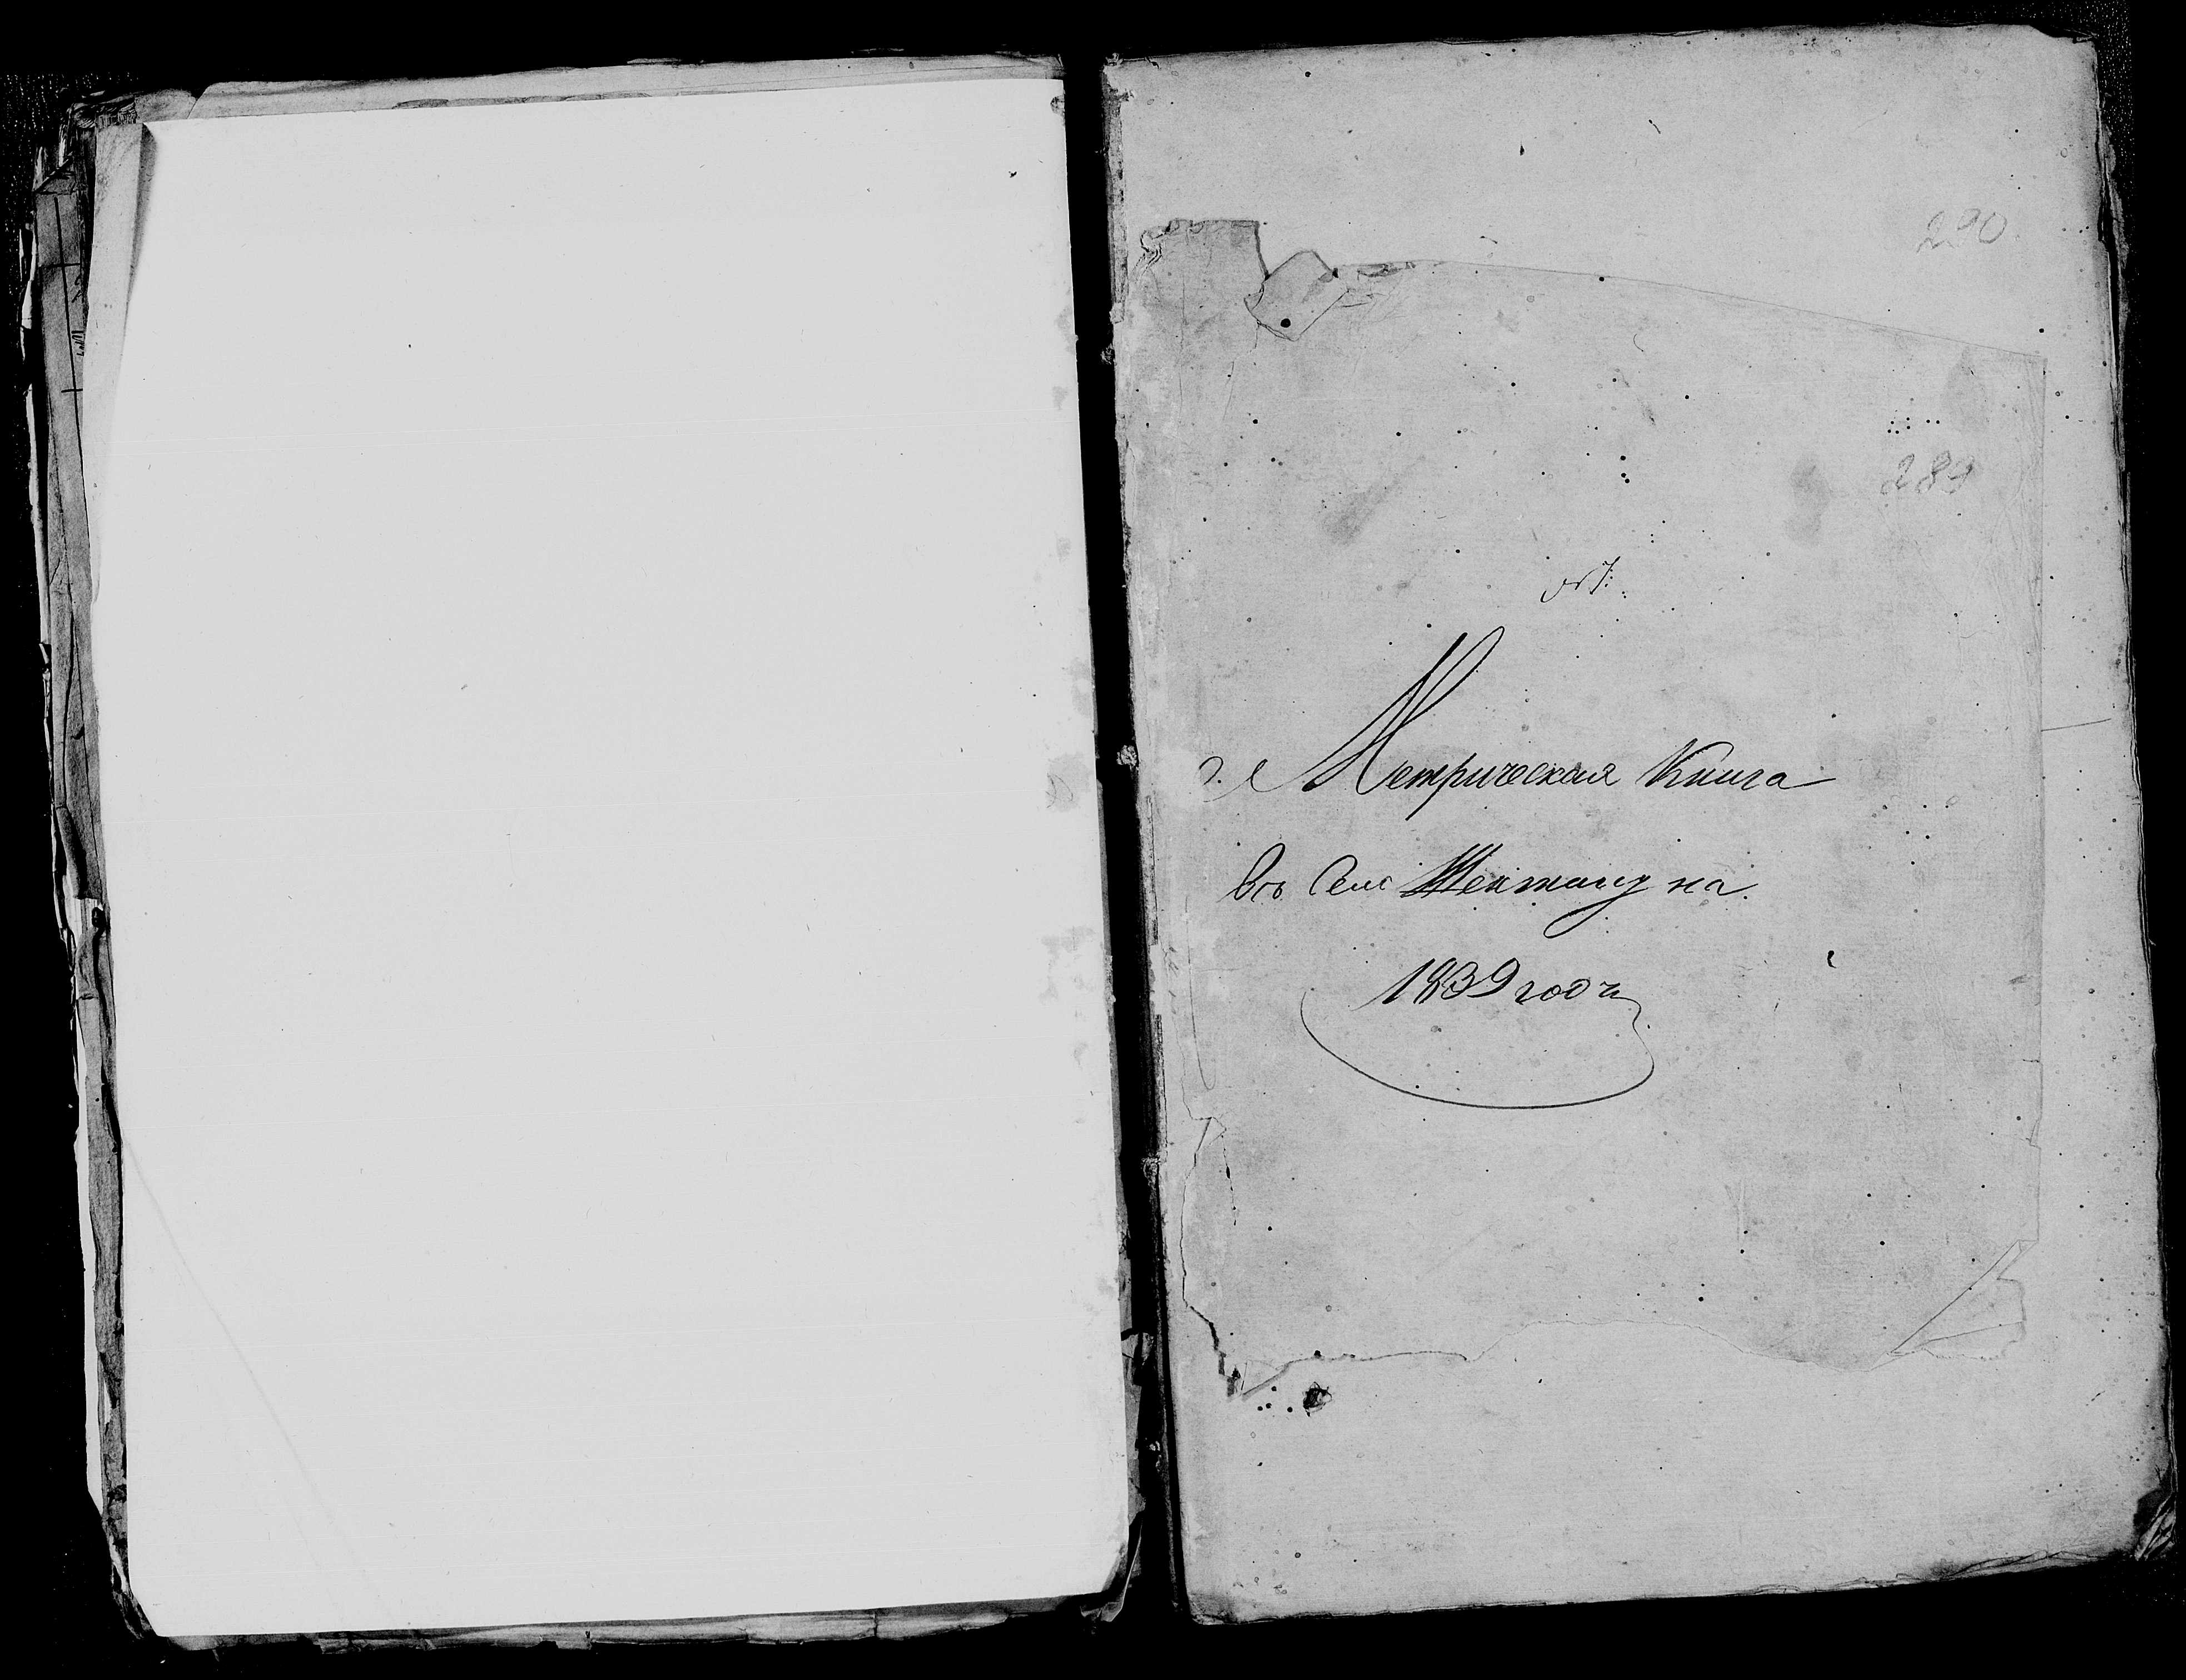 290
289
№ 7.
Метрическая Книга
Въ Село на
1839 годъ